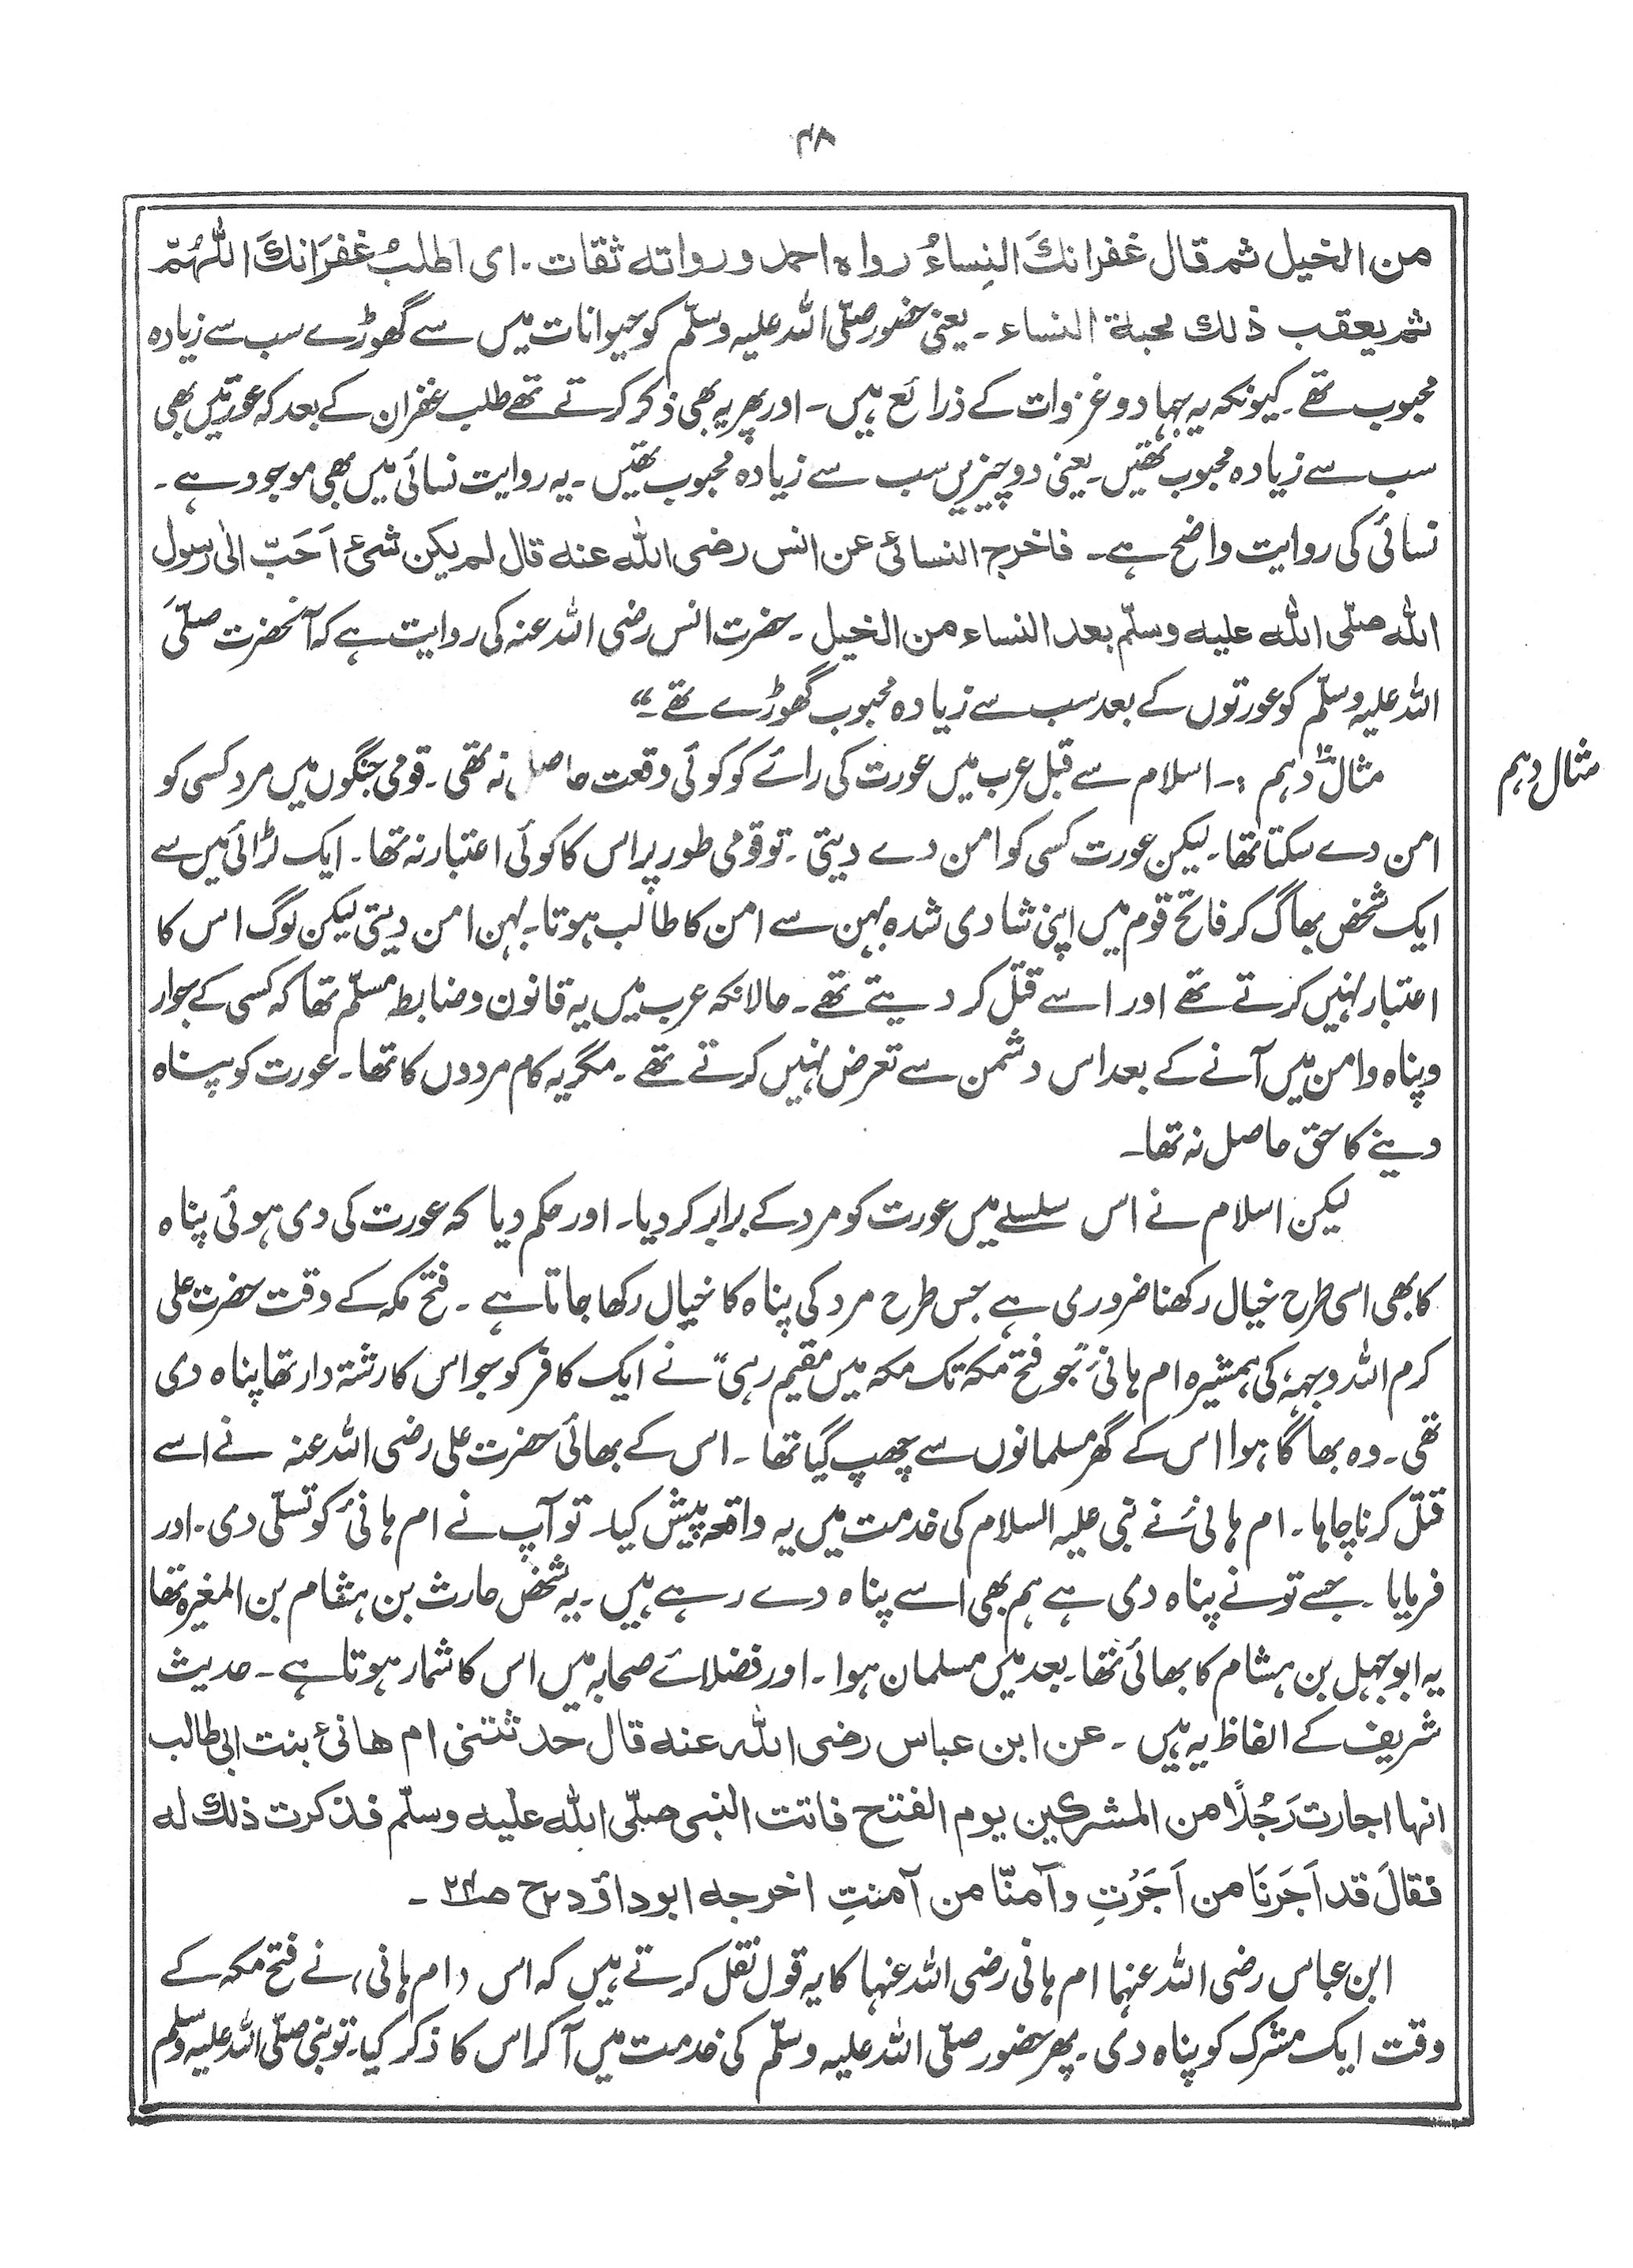 ۴۸
من الخيل ثم قال غفرانكَ النِساءُ رواه احمد ورواته ثقات۔ ای اطلبُ غفرَانكَ اللّٰهُمّ
ثم يعقب ذلك محبة النساء ۔ یعنی حضور صلّی اللہ علیہ وسلّم کو حیوانات میں سے گھوڑے سب سے زیادہ
محبوب تھے۔ کیونکہ یہ جہاد و غزوات کے ذرائع ہیں۔ اور پھر یہ بھی ذکر کرتے تھے طلب غفران کے بعد کہ عورتیں بھی
سب سے زیادہ محبوب تھیں۔ یعنی دو چیزیں سب سے زیادہ محبوب تھیں۔ یہ روایت نسائی میں بھی موجود ہے۔
نسائی کی روایت واضح ہے۔ فاخرج النسائی عن انس رضی اللّٰه عنه قال لم يكن شئ اَحَبّ الیٰ رسول
اللّٰه صلّی اللّٰه عليه وسلّم بعد النساء من الخيل ۔ حضرت انس رضی اللہ عنہ کی روایت ہے کہ آنحضرت صلّی
اللہ علیہ وسلّم کو عورتوں کے بعد سب سے زیادہ محبوب گھوڑے تھے۔“
مثال دہم
مثال ۱۰ دہم :۔ اسلام سے قبل عرب میں عورت کی رائے کو کوئی وقعت حاصل نہ تھی۔ قومی جنگوں میں مرد کسی کو
امن دے سکتا تھا۔ لیکن عورت کسی کو امن دے دیتی۔ تو قومی طور پر اس کا کوئی اعتبار نہ تھا۔ ایک لڑائی میں سے
ایک شخص بھاگ کر فاتح قوم میں اپنی شادی شدہ بہن سے امن کا طالب ہوتا۔ بہن امن دیتی لیکن لوگ اس کا
اعتبار نہیں کرتے تھے اور اسے قتل کر دیتے تھے۔ حالانکہ عرب میں یہ قانون و ضابطہ مسلّم تھا کہ کسی کے جوار
و پناہ و امن میں آنے کے بعد اس دشمن سے تعرض نہیں کرتے تھے۔ مگر یہ کام مردوں کا تھا۔ عورت کو پناہ
دینے کا حق حاصل نہ تھا۔
لیکن اسلام نے اس سلسلے میں عورت کو مرد کے برابر کر دیا۔ اور حکم دیا کہ عورت کی دی ہوئی پناہ
کا بھی اسی طرح خیال رکھنا ضروری ہے جس طرح مرد کی پناہ کا خیال رکھا جاتا ہے۔ فتح مکہ کے وقت حضرت علی
کرم اللہ وجہہٗ کی ہمشیرہ ام ہانیؓ ”جو فتح مکہ تک مکہ میں مقیم رہی“ نے ایک کافر کو جو اس کا رشتہ دار تھا پناہ دی
تھی۔ وہ بھاگا ہوا اس کے گھر مسلمانوں سے چھپ گیا تھا۔ اس کے بھائی حضرت علی رضی اللہ عنہ نے اسے
قتل کرنا چاہا۔ ام ہانیؓ نے نبی علیہ السلام کی خدمت میں یہ واقعہ پیش کیا۔ تو آپ نے ام ہانیؓ کو تسلّی دی۔ اور
فرمایا۔ جسے تونے پناہ دی ہے ہم بھی اسے پناہ دے رہے ہیں۔ یہ شخص حارث بن ہشام بن المغیرہ تھا
یہ ابو جہل بن ہشام کا بھائی تھا۔ بعد میں مسلمان ہوا۔ اور فضلائے صحابہ میں اس کا شمار ہوتا ہے۔ حدیث
شریف کے الفاظ یہ ہیں ۔ عن ابن عباس رضی اللّٰه عنه قال حدثتنی ام هانئ بنت ابی طالب
انها اجارت رَجُلًا من المشركين يوم الفتح فاتت النبی صلّی اللّٰه عليه وسلّم فذكرت ذلك له
فقالَ قد اَجَرنَا من اَجَرْتِ وآمنّا من آمنتِ اخرجه ابوداؤد
ابن عباس رضی اللہ عنہما ام ہانی رضی اللہ عنہا کا یہ قول نقل کرتے ہیں کہ اس (ام ہانی) نے فتح مکہ کے
وقت ایک مشرک کو پناہ دی۔ پھر حضور صلّی اللہ علیہ وسلّم کی خدمت میں آکر اس کا ذکر کیا۔ تو نبی صلّی اللہ علیہ وسلّم